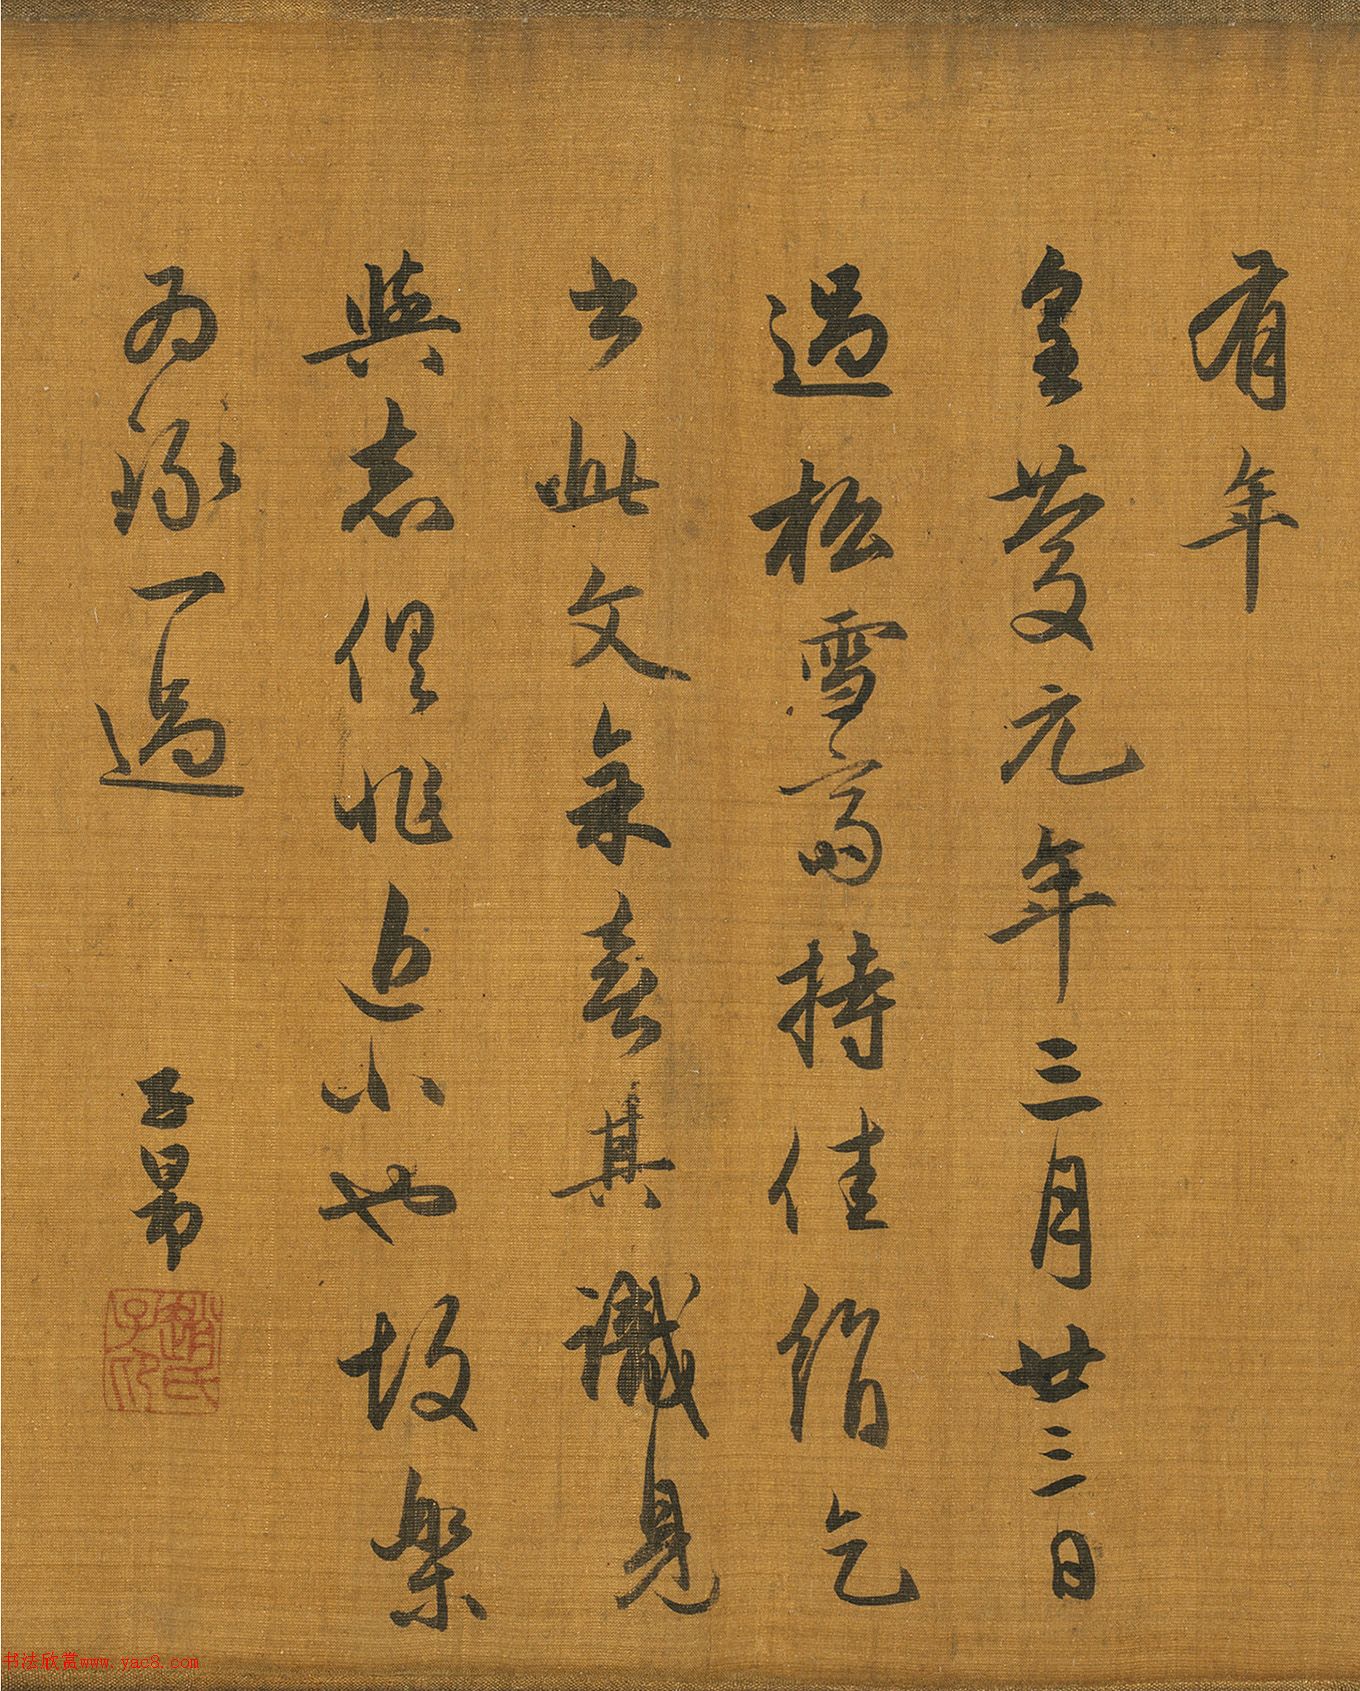 有年
皇慶元年三月廿三日
過松雪齋持佳絹乞
書此文余喜其識見
與志俱非近小也故樂
為瑑一過
子昂
趙氏子印
书法欣赏www.yac8.com